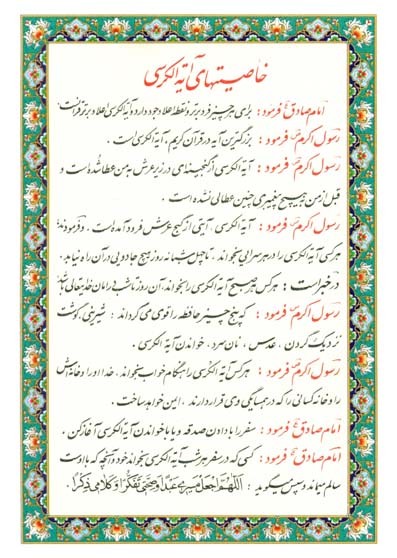 خاصیتهای آیة الکرسی
امام صادق (ع) فرمود : برای هر چیز فرد برتر و نقطه اعلا وجود دارد و آیة الکرسی اعلا و برتر قرآنست.
رسول اکرم (ص) فرمود : بزرگترین آیه در قرآن کریم ، آیة الکرسی است .
رسول اکرم (ص) فرمود : آیة الکرسی از گنجینه‌ای در زیر عرش به من عطا شده است و
قبل از من به هیچ پیغمبری چنین عطائی نشده است .
رسول اکرم (ص) فرمود : آیة الکرسی ، آیتی از گنج عرش فرود آمده است . و فرموده‌اند
هر کسی آیة الکرسی را در هر سرایی بخواند ، تا چهل شبانه روز هیچ جادویی در آن راه نیابد .
در خبر است : هر کس هر صبح آیة الکرسی را بخواند، آن روز تا شب در امان خدایتعالی باشد
رسول اکرم (ص) فرمود : که پنج چیز حافظه را قوی می گرداند : شیرینی ، گوشت
نزدیک گردن ، عدس ، نان سرد ، خواندن آیة الکرسی .
رسول اکرم (ص) فرمود : هر کس آیة الکرسی را هنگام خواب بخواند، خدا او را و خانه‌اش
را و خانه کسانی را که در همسایگی وی قرار دارند ، ایمن خواهد ساخت .
امام صادق (ع) فرمود : سفر را با دادن صدقه و یا با خواندن آیة الکرسی آغاز کن .
امام صادق (ع) فرمود : کسی که در سفر هر شب آیة الکرسی بخواند خود و آنچه که با اوست
سالم میماند و سپس میگوید : اَللّهُمَّ اجعَل مَسیری عِبَراً وَ صَمتی تَفَکُّراً وَ کَلامی ذِکراً .